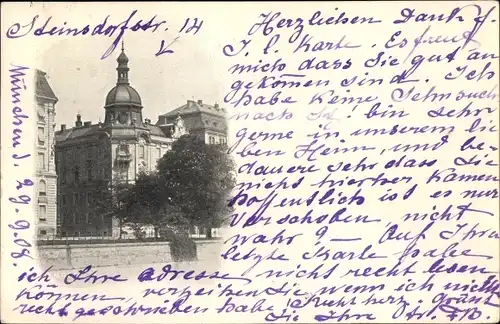 Steinsdorfstr. 14
München, 29.9.08
Herzlichen Dank f.
I. l. Karte. Es freut
mich dass Sie gut an
gekommen sind. Ich
habe keine Sehnsuch
nach bin sehr
gerne in unserem lie
ben Heim, und be-
dauere sehr dass Sie
nicht hierher kamen
hoffentlich ist es nur
verschoben, nicht
wahr? – Auf Ihre
letzte Karte habe
ich Ihre Adresse nicht recht lesen
können, verzeihen Sie wenn ich nicht
recht geschrieben habe. Recht herz. Grüsse
Sie Ihre